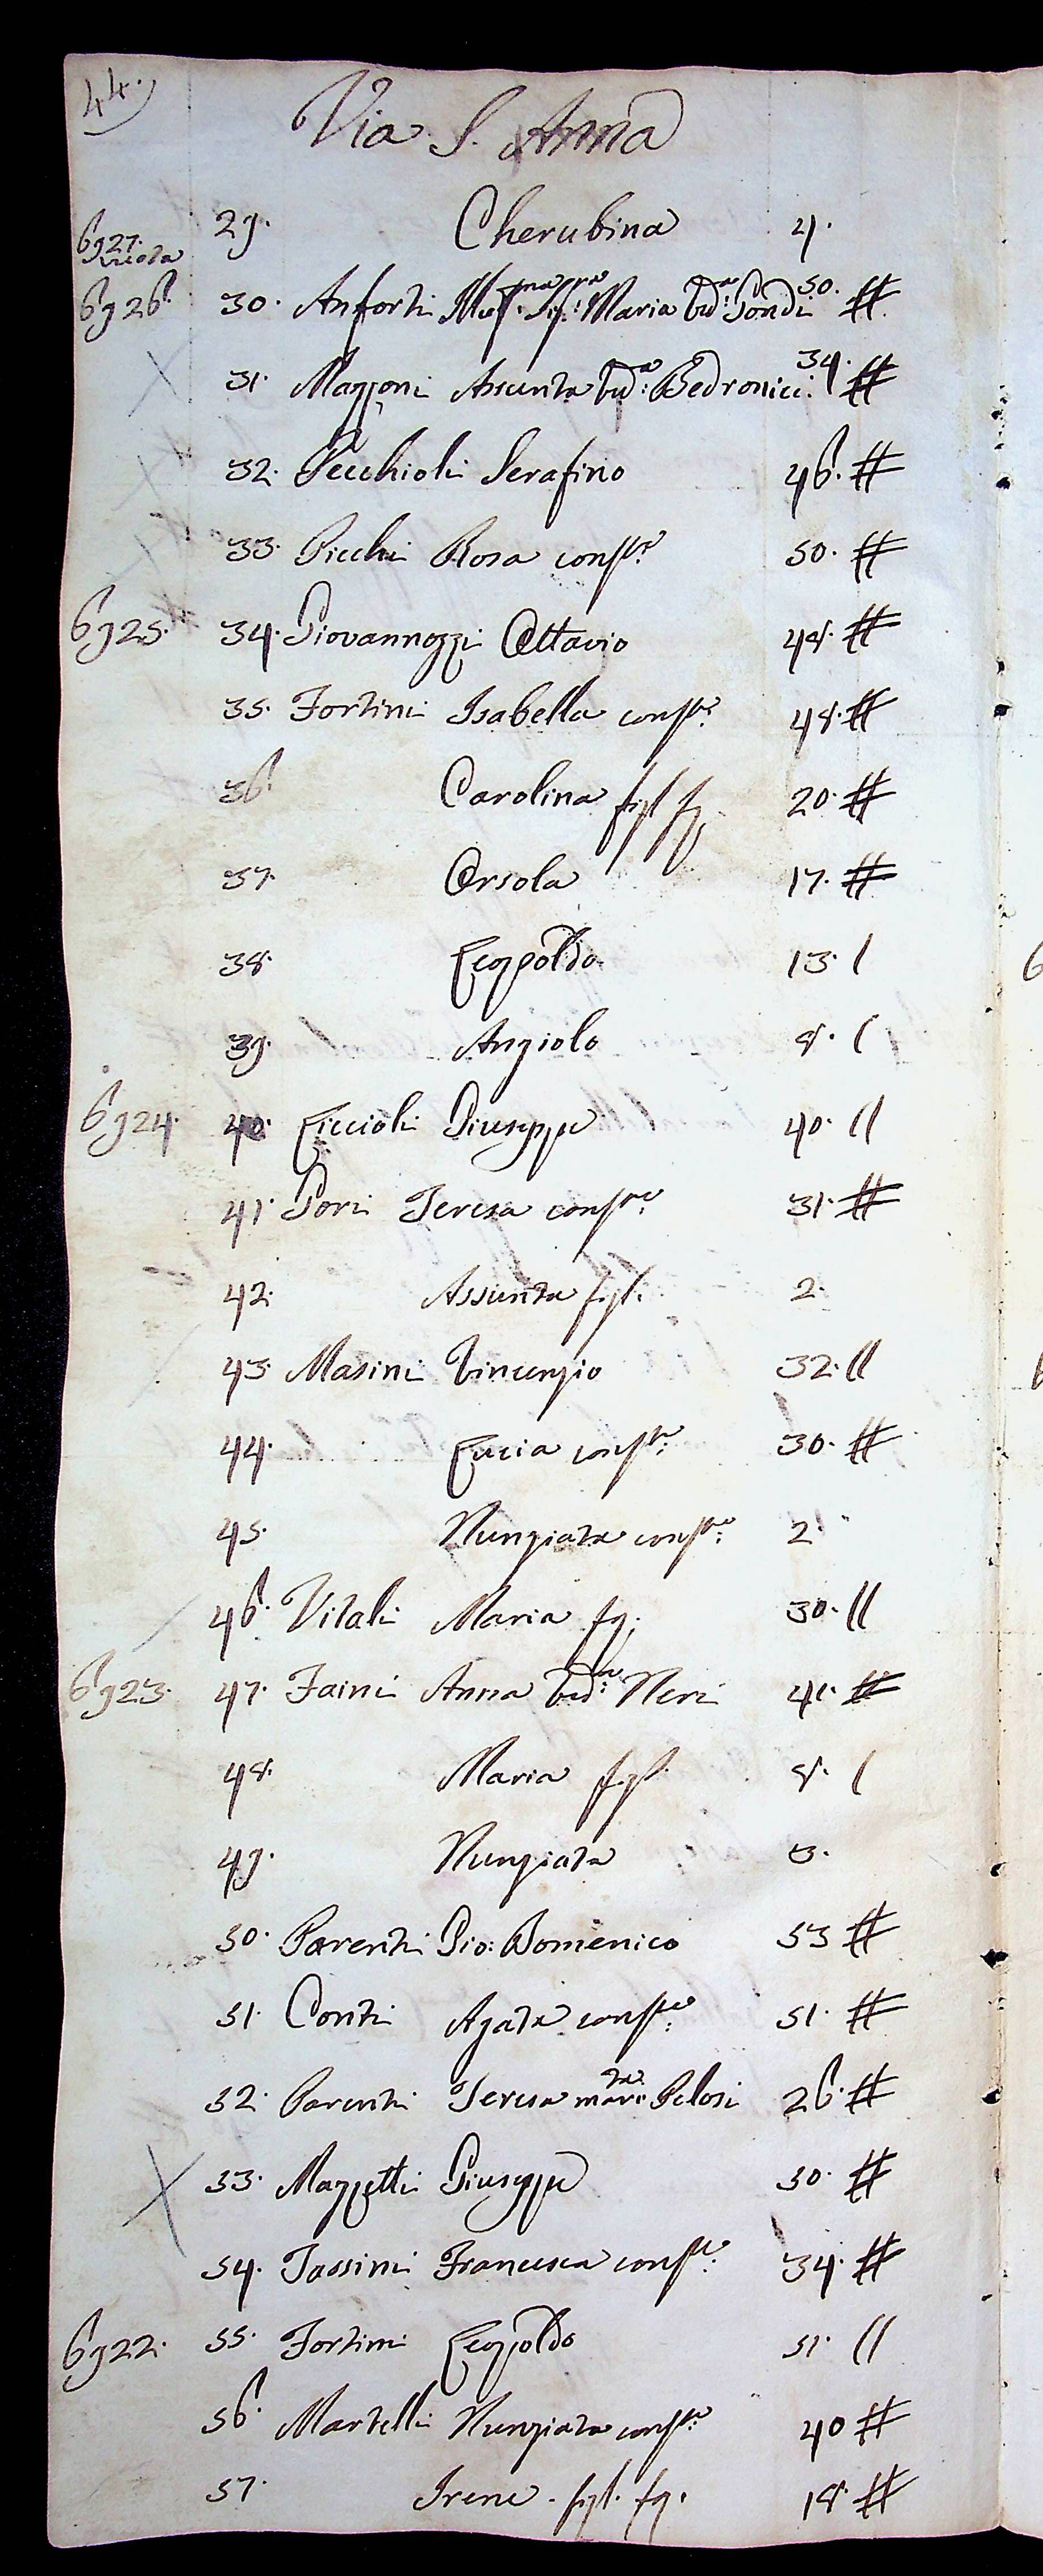 44.
Via S. Anna
6927. vuota 29. Cherubina 4.
6926. 30. Anforti Ill.ma Sig.ra Maria Ved.a Gondi 50. #
31. Mazzoni Assunta Ved.a Bedronici. 34. #
32. Pecchioli Serafino 46. #
33. Picchi Rosa cons.te 50. #
6925. 34. Giovannozzi Ottavio 48. #
35. Fortini Isabella cons.te 48. #
36. Carolina figl fg. 20. #
37. Orsola 17. #
38. Leopoldo 13. /
39. Angiolo 8. /
6924. 40. Liccioli Giuseppe 40. //
41. Gori Teresa cons.te 31. #
42. Assunta figl. 2.
43. Masini Vincenzio 32. //
44. Lucia cons.te 30. #
45. Nunziata cons.te 2.
46. Vitali Maria fg. 30. //
6923. 47. Faini Anna Ved.a Neri 41. #
48. Maria figl. 8. /
49. Nunziata 3.
50. Parenti Gio: Domenico 53 #
51. Conti Agata cons.te 51. #
52. Parenti Teresa mari.ta Pelosi 26. #
53. Mazzetti Giuseppe 50. #
54. Tassini Francesca cons.te 34. #
6922. 55. Fortini Leopoldo 51. //
56. Martelli Nunziata cons.te 40 #
57. Irene. figl. fg. 18. #